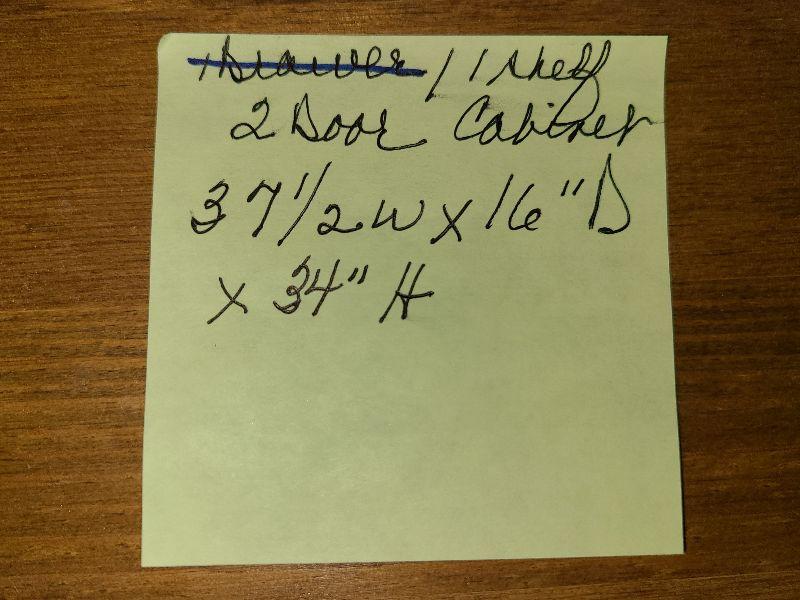 1 Drawer / 1 shelf
2 Door Cabinet
37 1/2 W x 16" D
x 34" H